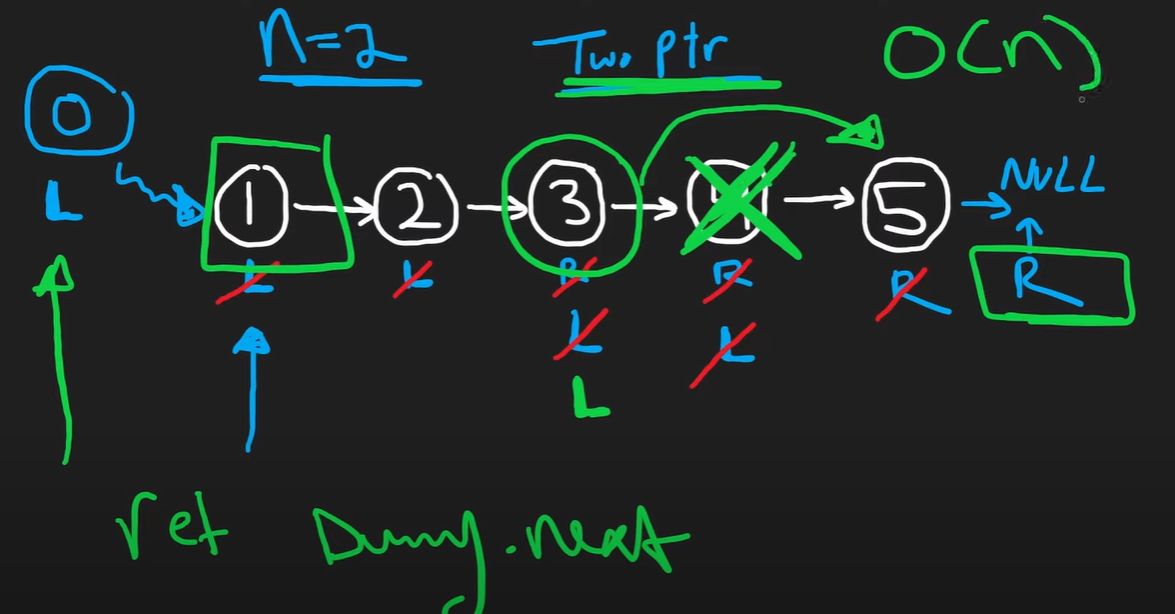 n=2 Two ptr O(n)
0
L
1 2 3 4 5 NULL
L L R R R R
L L
L
ret Dummy.next